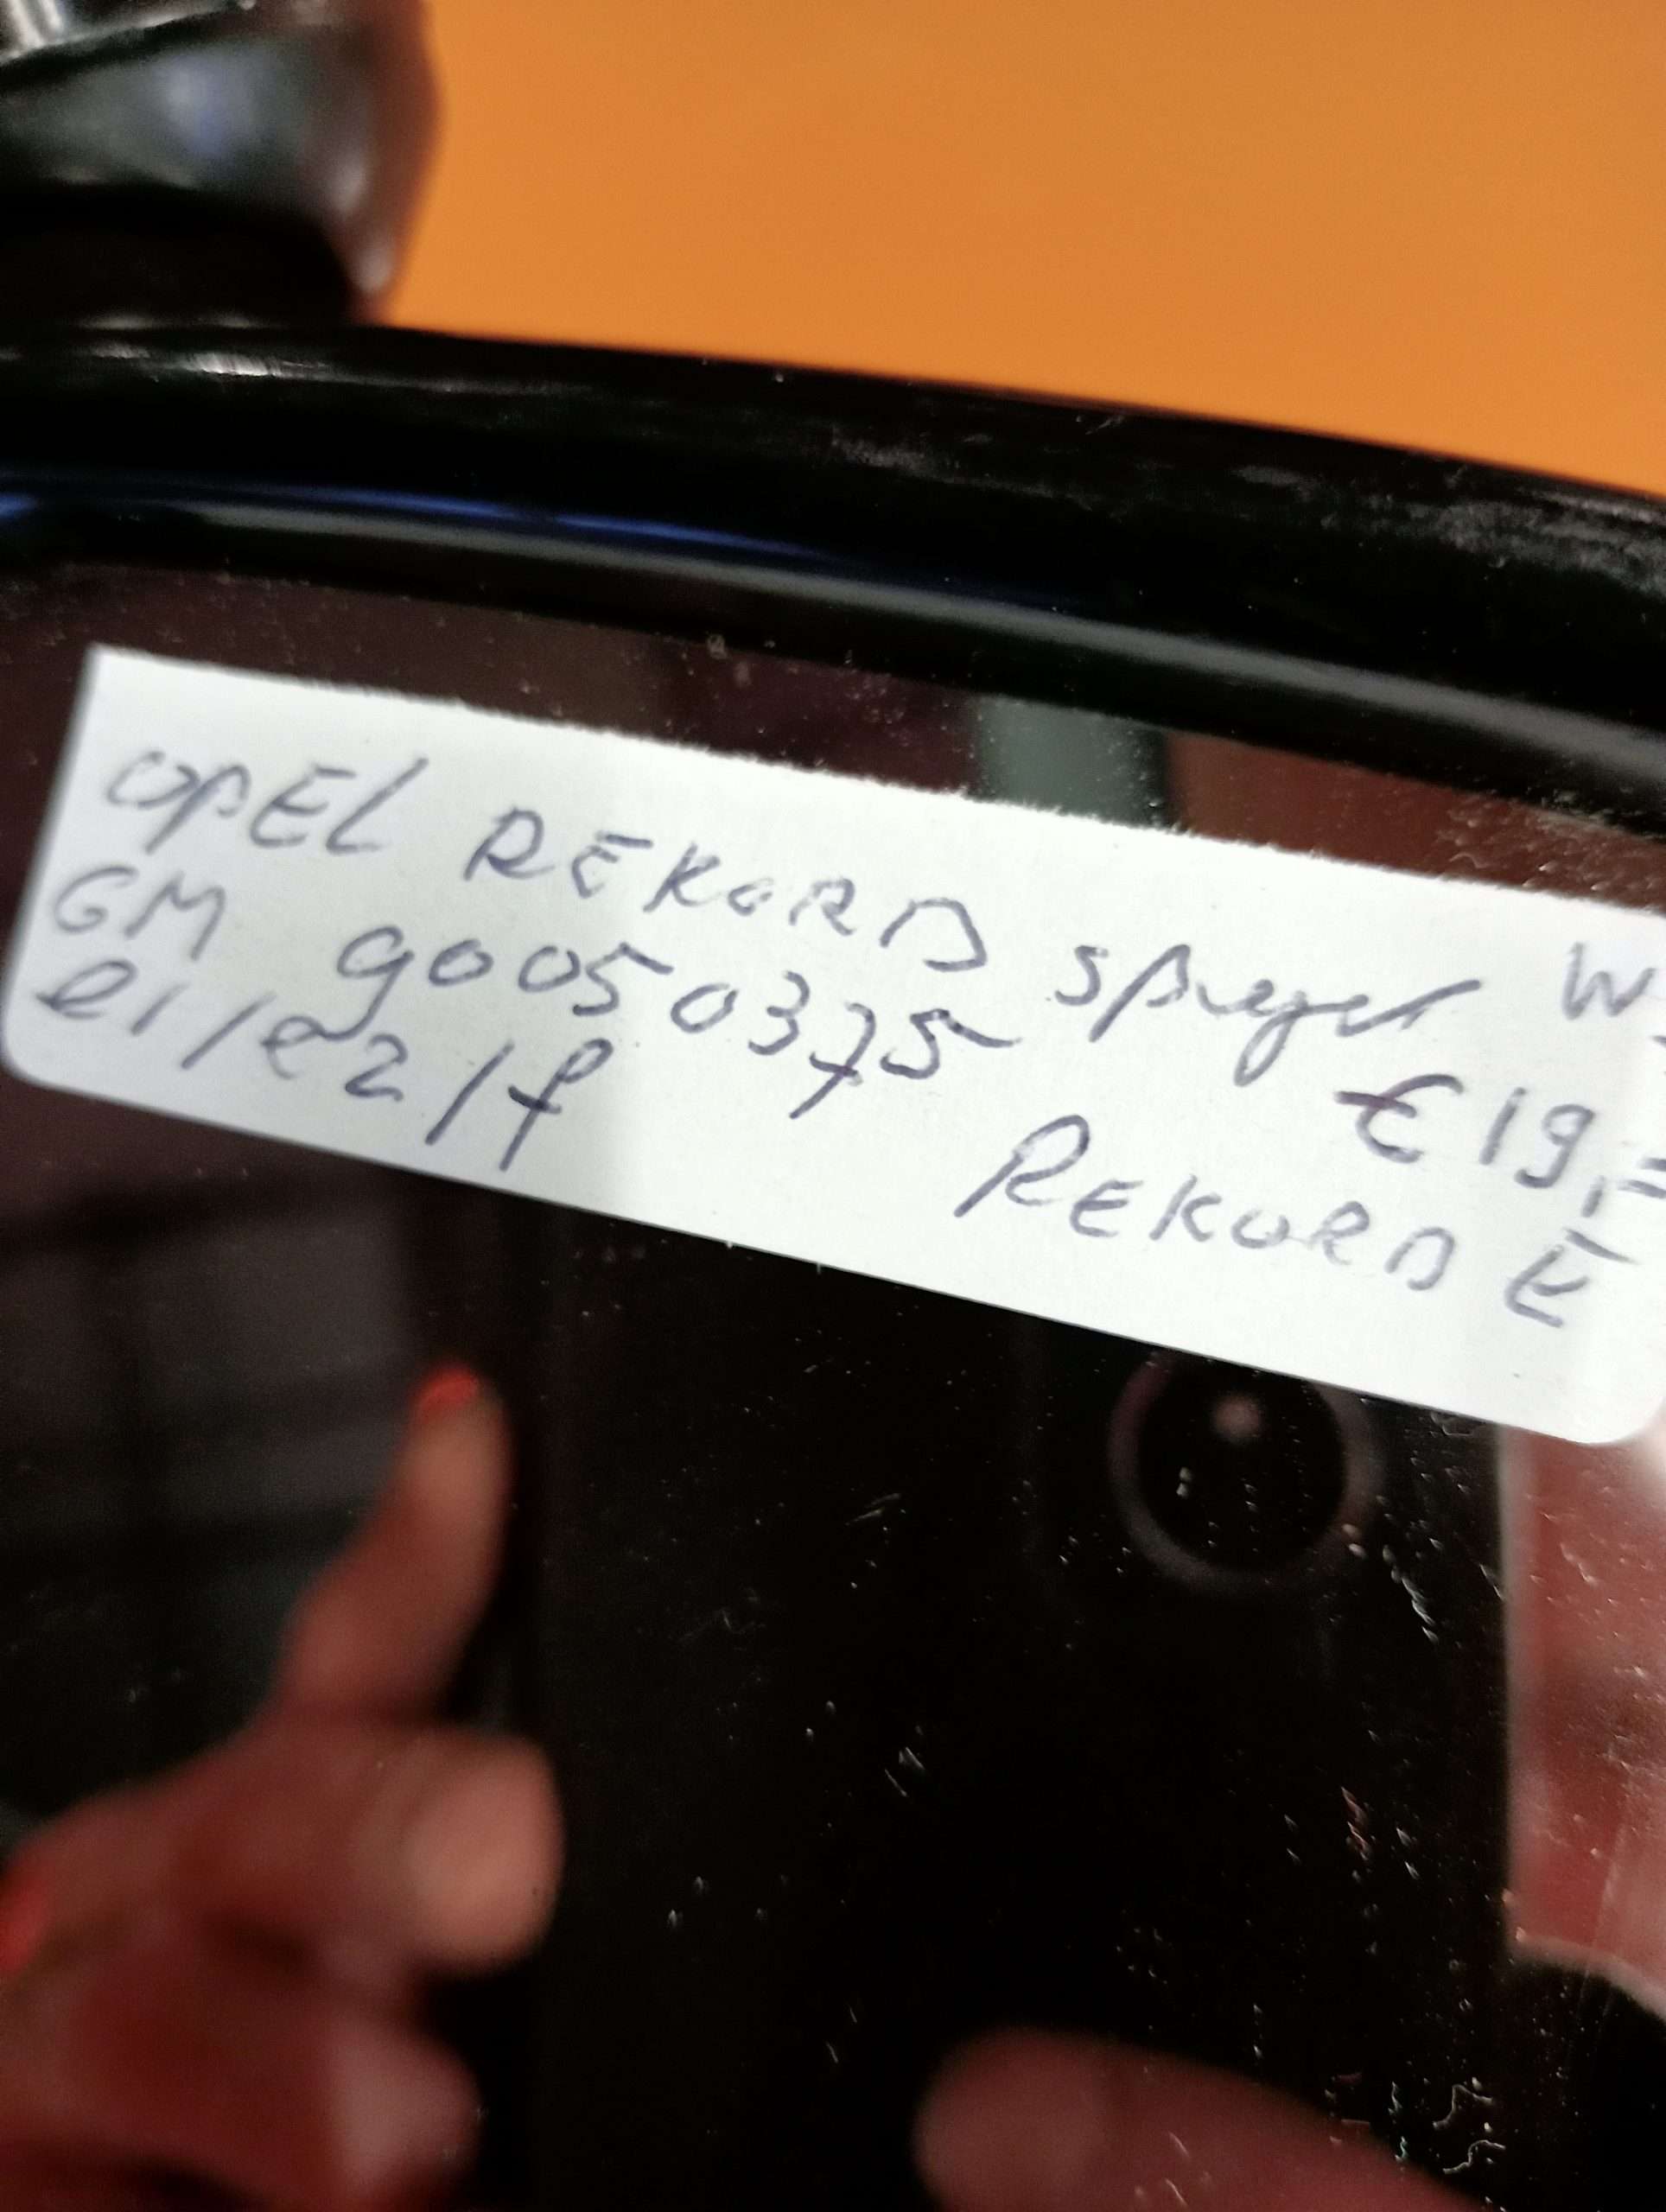 OPEL REKORD spiegel W
GM 90050375 €19,=
e1/e2/f REKORD E